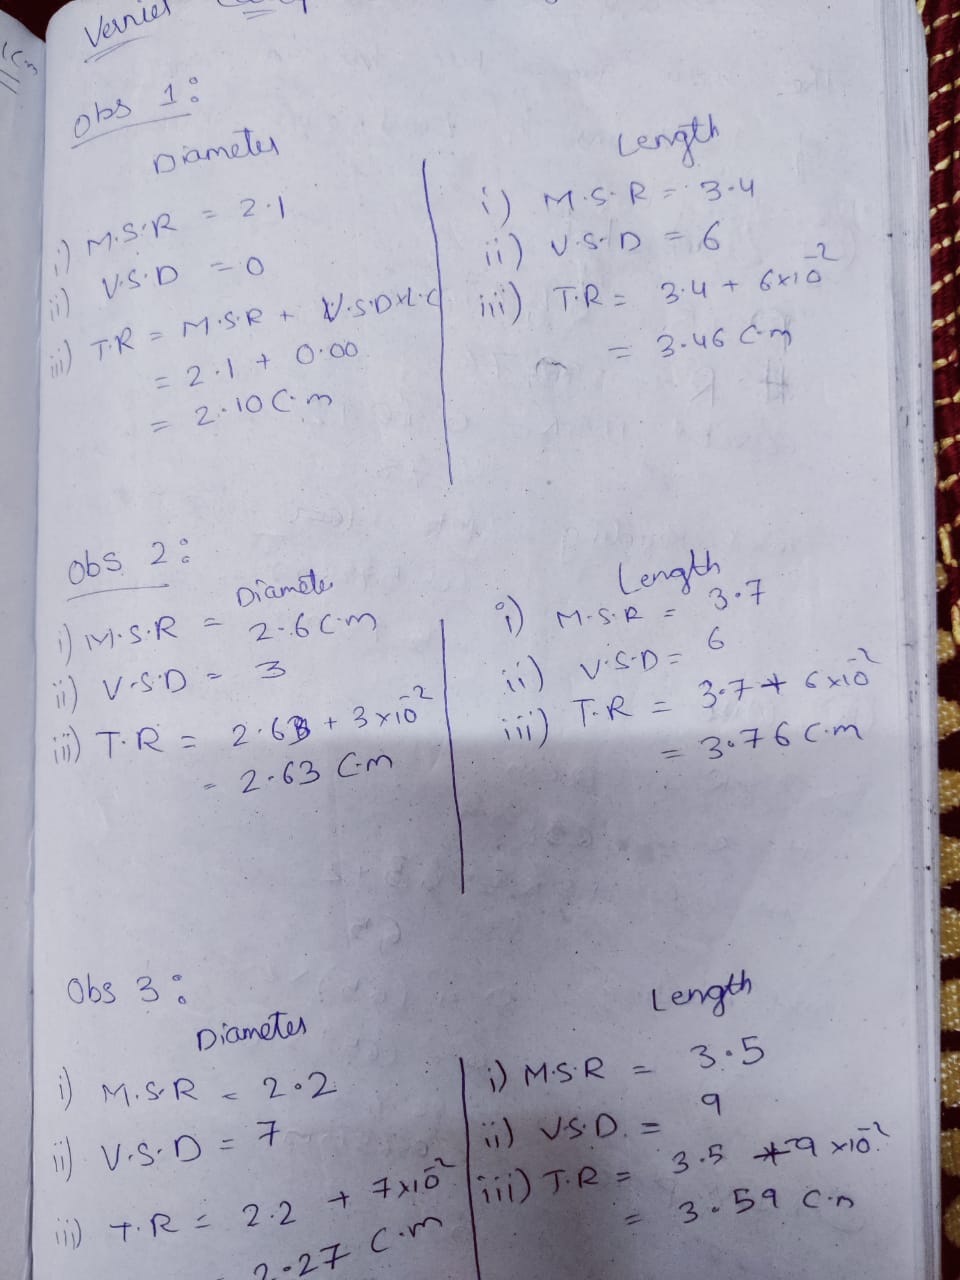 Vernier
Obs 1:
Diameter
i) M.S.R = 2.1
ii) V.S.D = 0
iii) T.R = M.S.R + V.S.D×L.C
= 2.1 + 0.00
= 2.10 C.m
Length
i) M.S.R = 3.4
ii) V.S.D = 6
iii) T.R = 3.4 + 6×10⁻²
= 3.46 C.m
Obs 2:
Diamete
i) M.S.R = 2.6 C.m
ii) V.S.D = 3
iii) T.R = 2.6 + 3×10⁻²
= 2.63 C.m
Length
i) M.S.R = 3.7
ii) V.S.D = 6
iii) T.R = 3.7 + 6×10⁻²
= 3.76 C.m
Obs 3:
Diameter
i) M.S.R = 2.2
ii) V.S.D = 7
iii) T.R = 2.2 + 7×10⁻²
2.27 C.m
Length
i) M.S.R = 3.5
ii) V.S.D. = 9
iii) T.R = 3.5 + 9×10⁻²
= 3.59 C.m